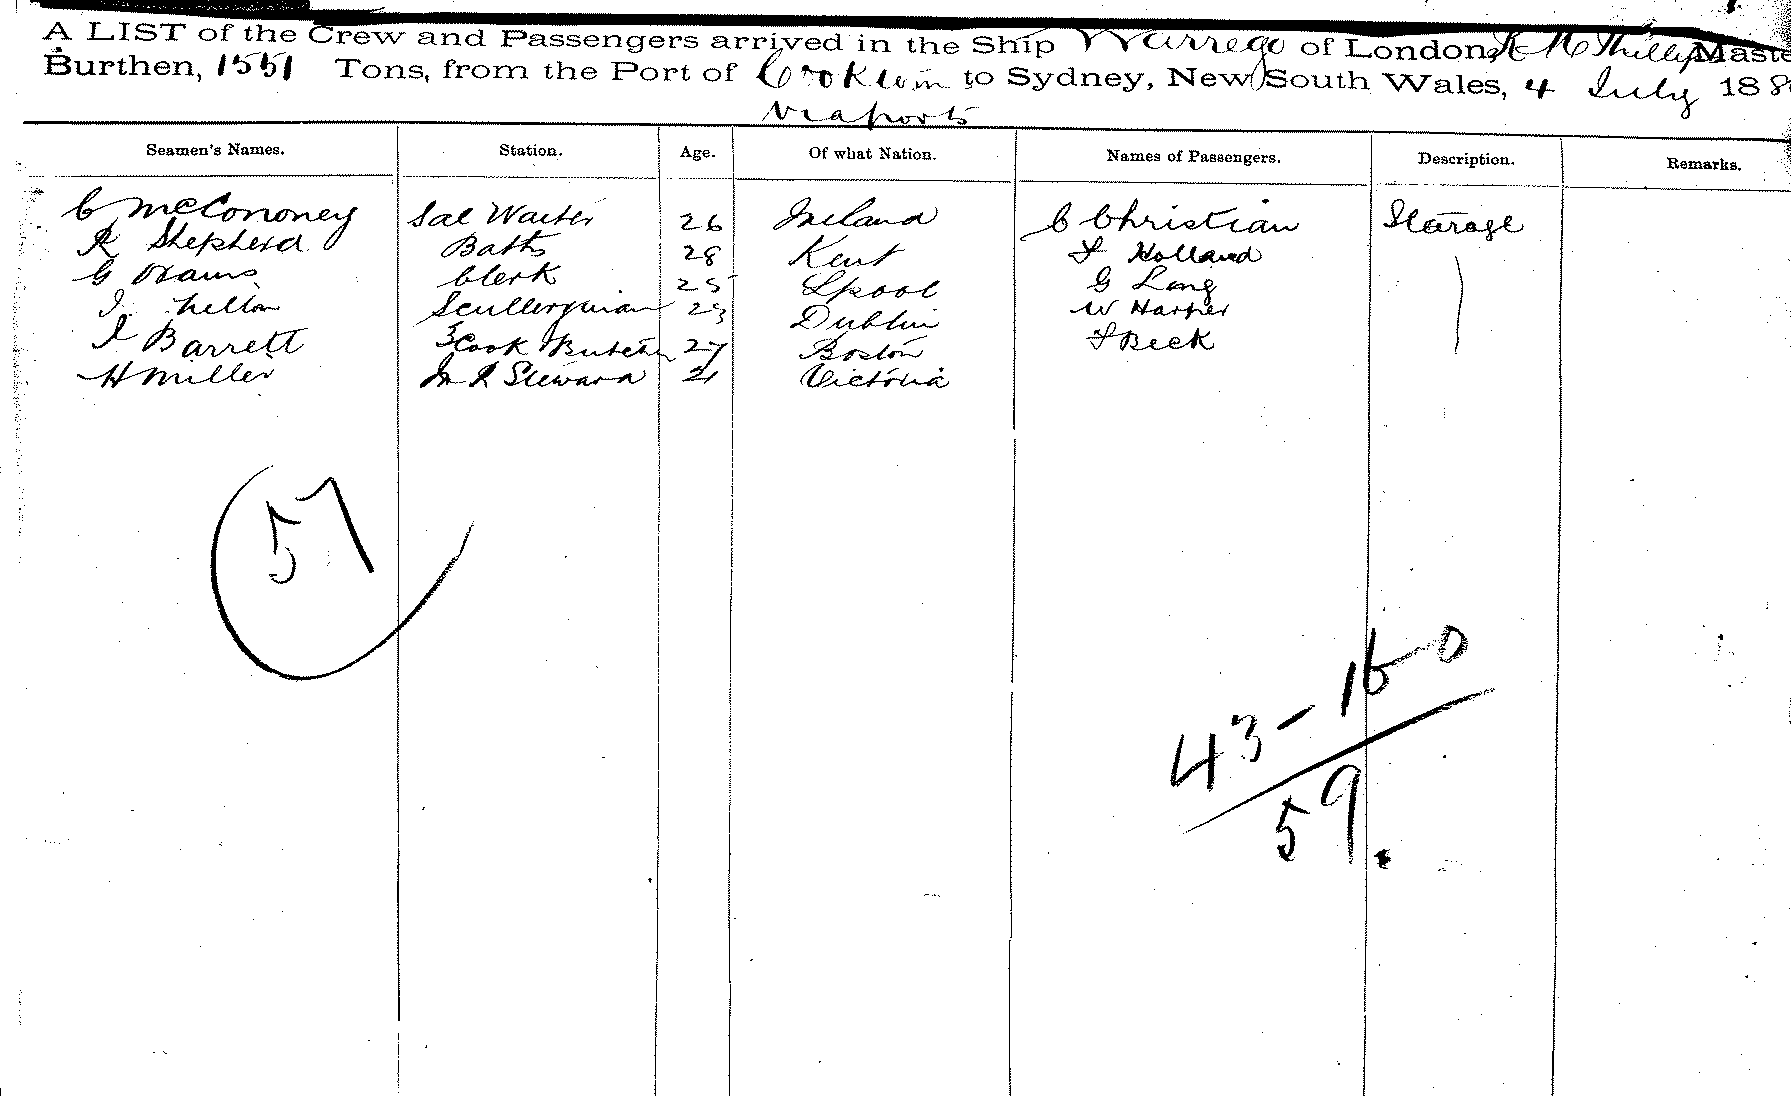 A LIST of the Crew and Passengers arrived in the Ship Warrego of London, Maste
Burthen, 1551 Tons, from the Port of Cooktown to Sydney, New South Wales, 4 July 188
via ports
Seamen's Names. Station. Age. Of what Nation. Names of Passengers. Description. Remarks.
C McCononey Sal Waiter 26 Ireland C Christian Starage
R Shepherd Baths 28 Kent F Holland
G Clerk 25 Lpool G Lang
Sculleryman 23 Dublin W Harper
Barrett 3 Cook Butcher 27 Boston F Beck
H Miller Steward 21 Victoria
57
43 - 16 - 0
59.